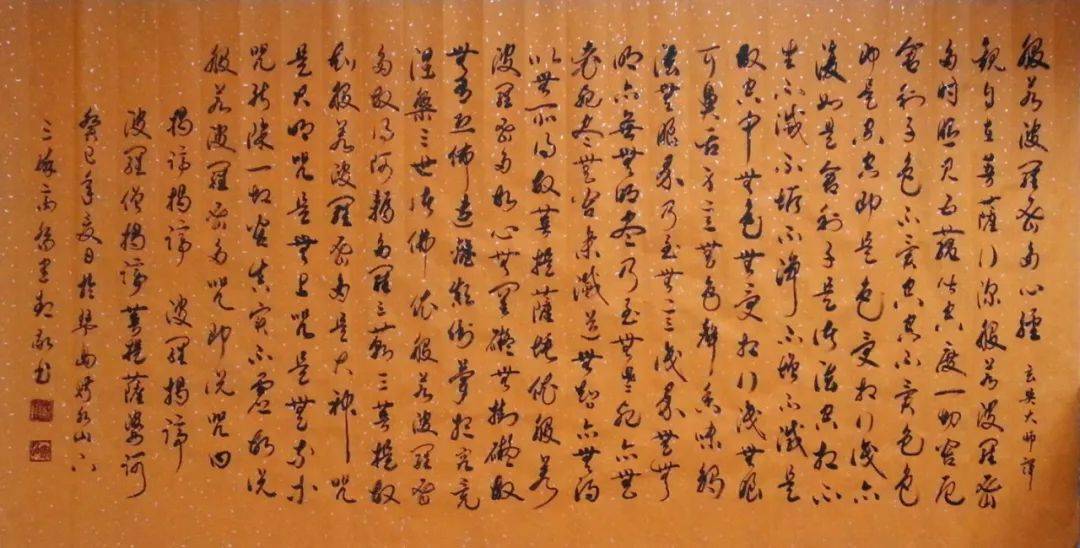 般若波羅蜜多心經 玄奘大師譯
觀自在菩薩行深般若波羅蜜
多時照見五蘊皆空度一切苦厄
舍利子色不異空空不異色色
即是空空即是色受想行識亦
復如是舍利子是諸法空相不
生不滅不垢不淨不增不減是
故空中無色無受想行識無眼
耳鼻舌身意無色聲香味觸
法無眼界乃至無意識界無無
明亦無無明盡乃至無老死亦無
老死盡無苦集滅道無智亦無得
以無所得故菩提薩埵依般若
波羅蜜多故心無罣礙無罣礙故
無有恐怖遠離顛倒夢想究竟
涅槃三世諸佛依般若波羅蜜
多故得阿耨多羅三藐三菩提故
知般若波羅蜜多是大神咒
是大明咒是無上咒是無等等
咒能除一切苦真實不虛故說
般若波羅蜜多咒即說咒曰
揭諦揭諦 波羅揭諦
波羅僧揭諦菩提薩婆訶
癸巳年夏日於山下